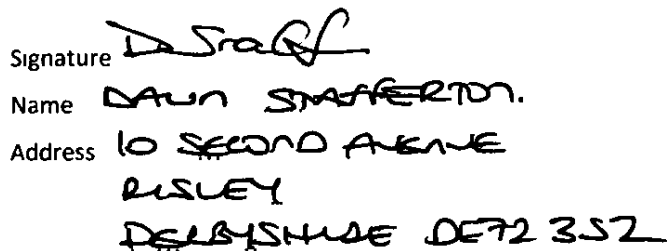 Signature D Staff
Name DAWN STAFFERTON.
Address 10 SECOND AVENUE
RISLEY
DERBYSHIRE DE72 3SZ